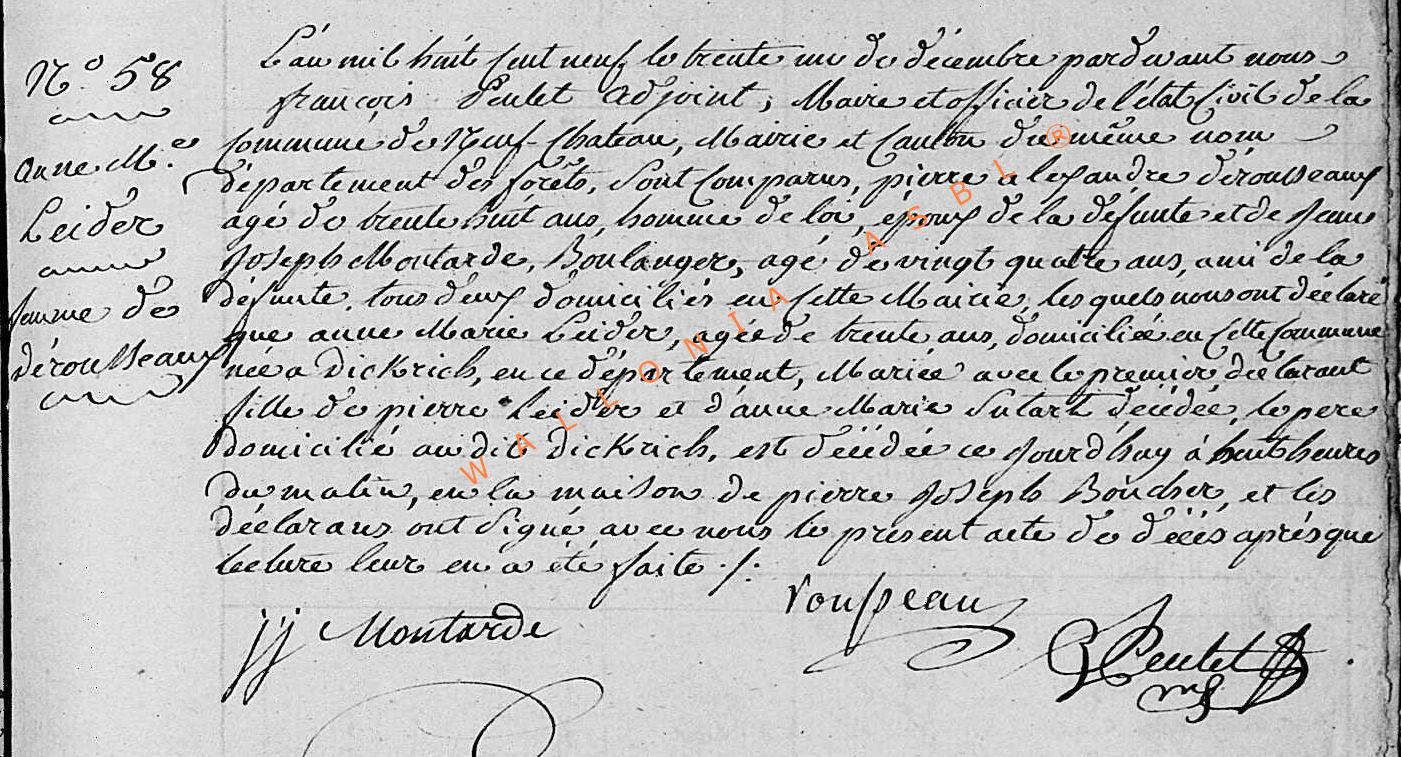 N.o 58
anne M.e
Leider
femme de
dérousseaux
L'an mil huit cent neuf le trente un de décembre pardevant nous
françois Peulet adjoint, Maire et officier de l'état Civil de la
Commune de Neuf-Chateau, Mairie et Canton du même nom
département des forêts, sont comparus, pierre alexandre dérousseaux
agé de trente huit ans, homme de loi, époux de la défunte et de Jean
Joseph Moutarde, Boulanger, agé de vingt quatre ans, ami de la
défunte, tous deux domiciliés en cette Mairie, lesquels nous ont déclaré
que anne Marie Leider, agée de trente ans, domiciliée en cette Commune
née a Dickrich, en ce département, Mariée avec le premier déclarant
fille de pierre Leider et d'anne Marie Sutart décédée, le pere
Domicilié audit Dickrich, est décédée ce jourd'huy à huit heures
du matin, en la maison de pierre Joseph Boucher, et les
déclarans ont signé avec nous le present acte de décés aprés que
lecture leur en a été faite ./.
jj Moutarde
rousseau
Peulet
WALLONIA ASBL ®